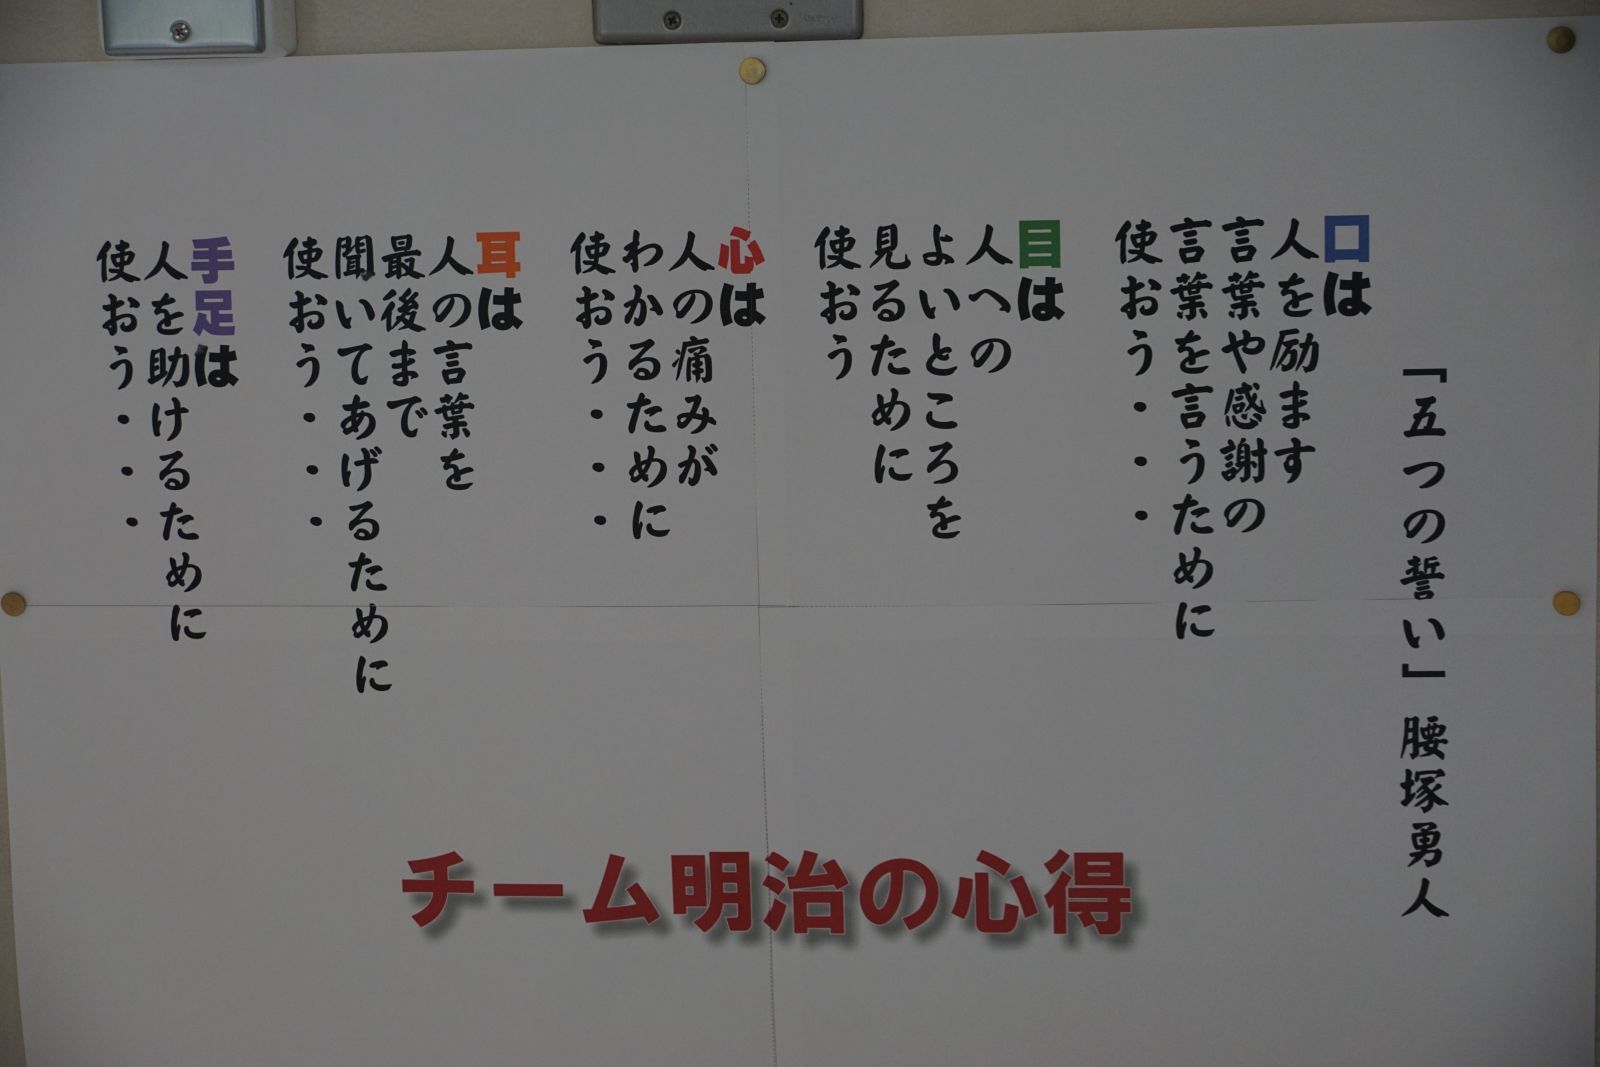 「五つの誓い」 腰塚勇人
口は
人を励ます
言葉や感謝の
言葉を言うために
使おう・・・
目は
人への
よいところを
見るために
使おう
心は
人の痛みが
わかるために
使おう・・・
耳は
人の言葉を
最後まで
聞いてあげるために
使おう・・・
手足は
人を助けるために
使おう・・・
チーム明治の心得